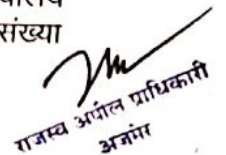 संख्या
राजस्व अपील प्राधिकारी
अजमेर